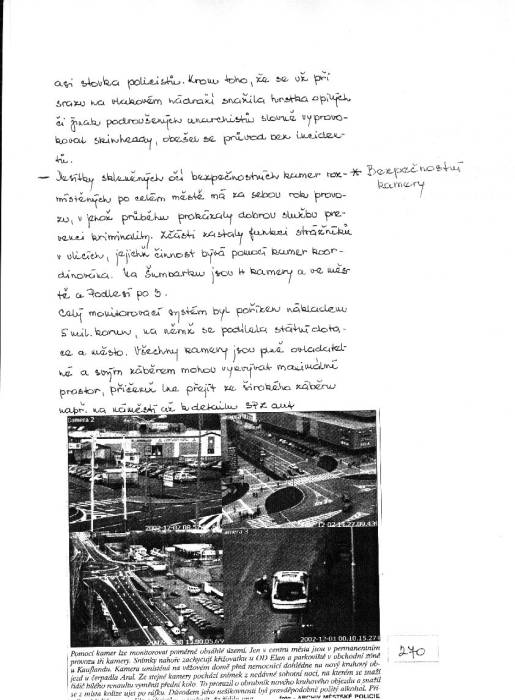 asi stovka policistů. Krom toho, že se už při
srazu na vlakovém nádraží snažila hrstka opilých
či jinak podroušených anarchistů slovně vyprovo-
kovat skinheady, obešel se průvod bez inciden-
tů.
– Desítky skleněných očí bezpečnostních kamer roz-
místěných po celém městě má za sebou rok provo-
zu, v jehož průběhu prokázaly dobrou službu pre-
venci kriminality. Zčásti zastaly funkci strážníků
v ulicích, jejichž činnost bývá pomocí kamer koor-
dinována. Na Šumbarku jsou 4 kamery a ve měs-
tě a Podlesí po 3.
Celý monitorovací systém byl pořízen nákladem
5 mil. korun, na němž se podílela státní dota-
ce a město. Všechny kamery jsou plně ovladatel-
né a svým záběrem mohou vykrývat maximální
prostor, přičemž lze přejít ze širokého záběru
např. na náměstí až k detailu SPZ aut
* Bezpečnostní
kamery
Camera 2
2002-12-02
12-02 11.27.09.431
2002-12-01 00.10.15.27
Pomocí kamer lze monitorovat poměrně obsáhlé území. Jen v centru města jsou v permanentním
provozu tři kamery. Snímky nahoře zachycují křižovatku u OD Elan a parkoviště v obchodní zóně
u Kauflandu. Kamera umístěná na věžovém domě před nemocnicí dohlédne na nový kruhový ob-
jezd u čerpadla Aral. Ze stejné kamery pochází snímek z nedávné sobotní noci, na kterém se snaží
řidič bílého renaultu vyměnit přední kolo. To prorazil o obrubník nového kruhového objezdu a snaží
se z místa kolize ujet po ráfku. Důvodem jeho nešikovnosti byl pravděpodobně požitý alkohol. Při-
Foto – ARCHIV MĚSTSKÉ POLICIE
270